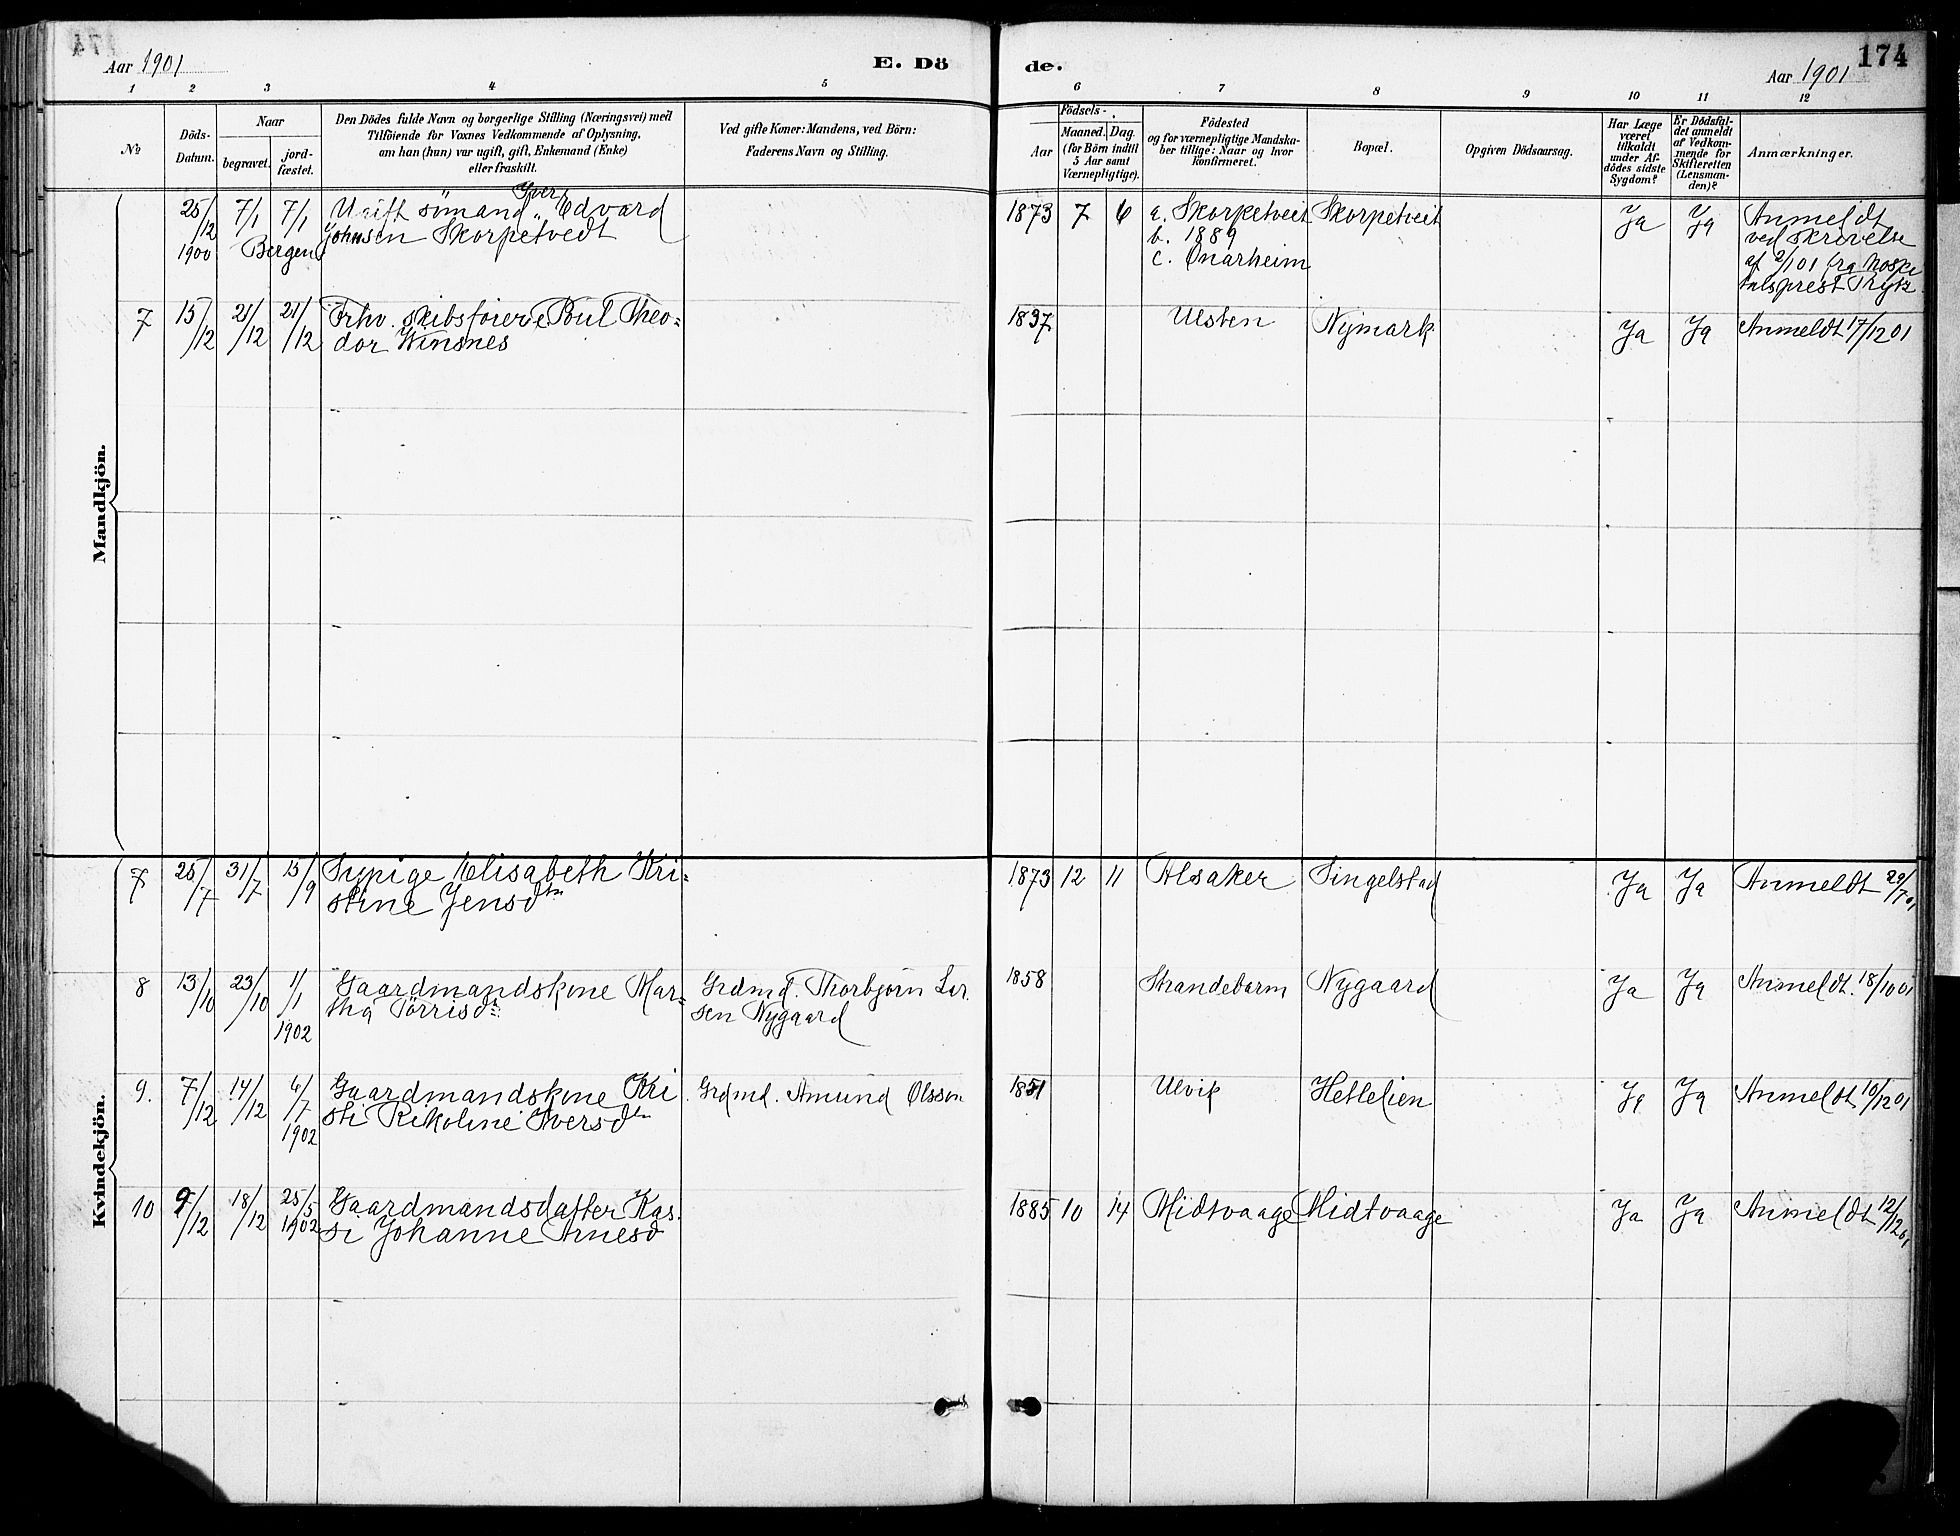 Aar 1901
E. Dö
de.
174
Aar 1901
1 2 3 4 5 6 7 8 9 10 11 12
№
Döds-
Datum.
Naar
begravet.
jord-
fæstet.
Den Dödes fulde Navn og borgerlige Stilling (Næringsvei) med
Tilföiende for Voxnes Vedkommende af Oplysning,
om han (hun) var ugift, gift, Enkemand (Enke)
eller fraskilt.
Ved gifte Koner: Mandens, ved Börn:
Faderens Navn og Stilling.
Födsels-
Aar
Maaned. Dag.
(for Börn indtil
5 Aar samt
Værnepligtige).
Födested
og for værnepligtige Mandska-
ber tillige: Naar og hvor
konfirmeret.
Bopæl.
Opgiven Dödsaarsag.
Har Læge
været
tilkaldt
under Af-
dödes sidste
Sygdom?
Er Dödsfal-
det anmeldt
af Vedkom-
mende for
Skifteretten
(Lensman-
den)?
Anmærkninger.
Mandkjön.
25/12 7/1 7/1 Ugift sömand Edvard 1873 7 6 a. Skorpetveit Skorpetveit Ja Ja Anmeldt
1900 Bergen Johnsen Skorpetvedt b. 1889 ved skrivelse
c. Onarheim af 2/1 01 fra hospi
talsprest
7 15/12 21/12 21/12 Frhv. skibsförer Poul Theo= 1837 Ulsten Nymark Ja Ja Anmeldt 17/12 01
dor Winsnes
Kvindekjön.
7 25/7 31/7 15/9 Sypige Elisabeth Kri= 1873 12 11 Alsaker Singelstad Ja Ja Anmeldt 29/7 01
stine Jensdtr
8 13/10 23/10 1/1 Gaardmandskone Mar= Grdmd. Thorbjørn Lar. 1858 Strandebarm Nygaard Ja Ja Anmeldt. 18/10 01
1902 tha Törrisdr. sen Nygaard
9. 7/12 14/12 6/7 Gaardmandskone Kri Grdmd. Amund Olsson 1851 Ulvik Hetlelien Ja Ja Anmeldt 10/12 01
1902 sti Rikoline Iversdtr
10 9/12 18/12 25/5 Gaardmandsdatter Kas. 1885 10 14 Midtvaage Midtvaage Ja Ja Anmeldt 12/12 01
1902 si Johanne Arnesd